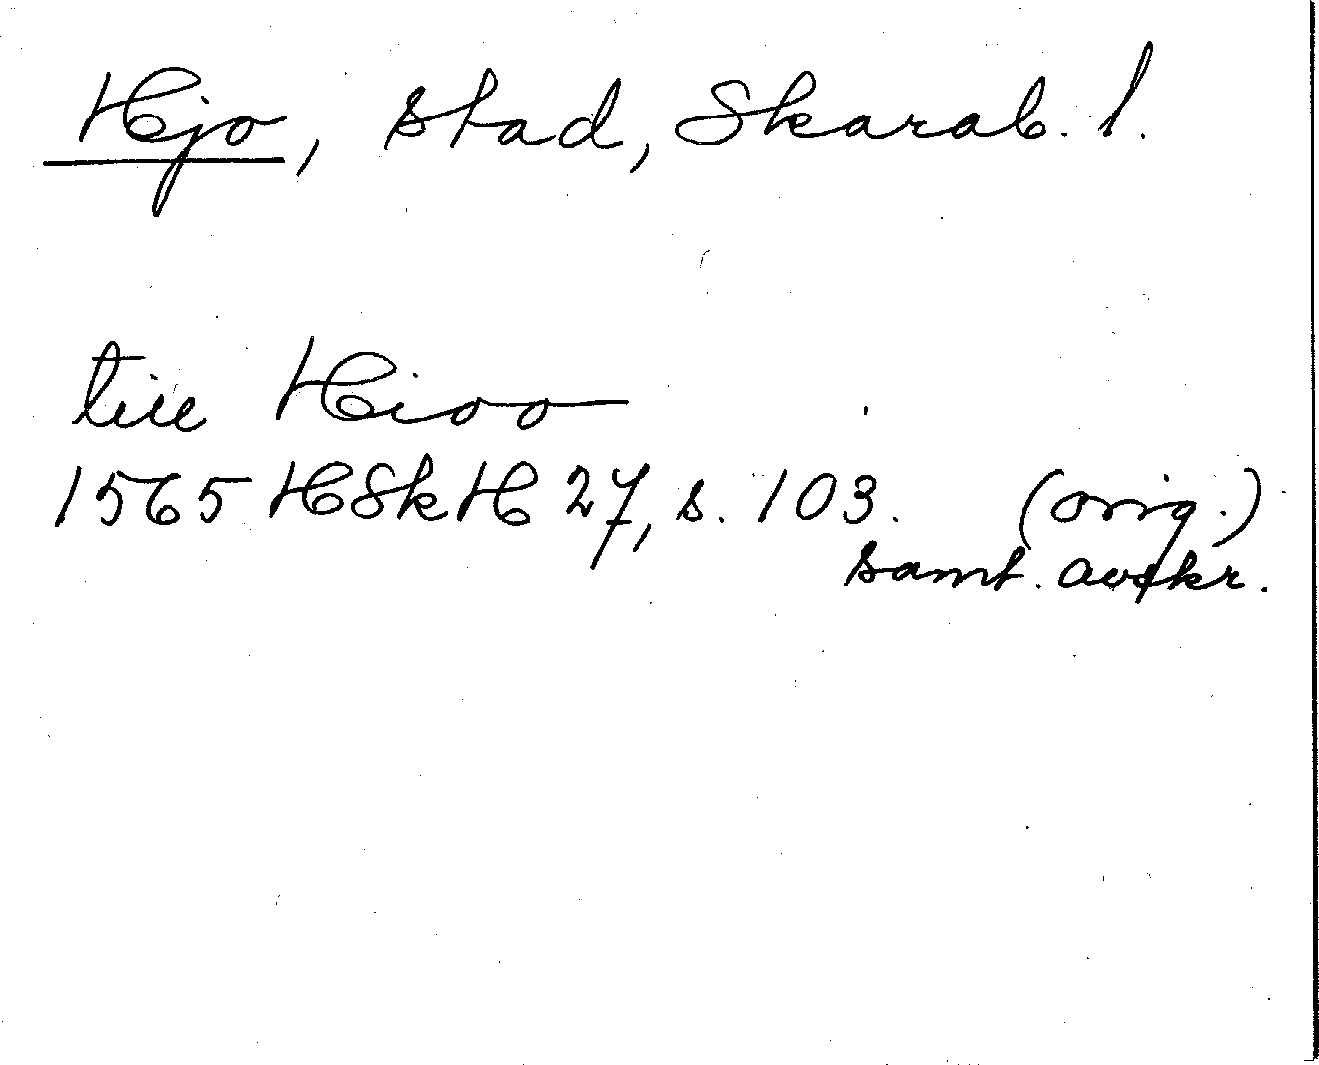 Hjo, stad, Skarab. l.
till Hioo
1565 HSkH 27, s. 103. (orig.)
samt. avskr.